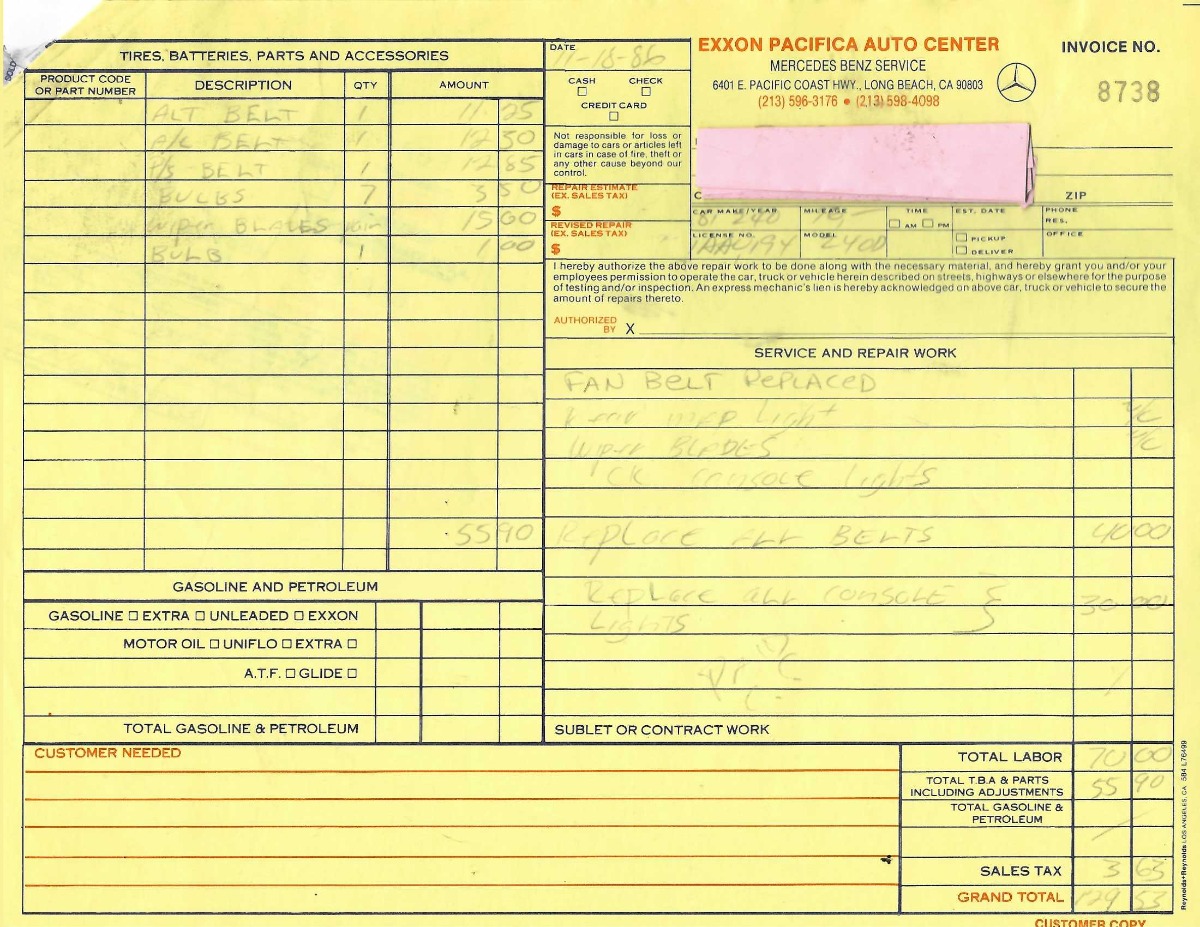 SOLD
TIRES, BATTERIES, PARTS AND ACCESSORIES
PRODUCT CODE OR PART NUMBER DESCRIPTION QTY AMOUNT
ALT BELT 1 11 25
A/C BELT 1 12 50
P/S BELT 1 12 85
BULBS 7 3 50
Wiper BLADES 15 00
BULB 1 1 00
55 90
GASOLINE AND PETROLEUM
GASOLINE ☐ EXTRA ☐ UNLEADED ☐ EXXON
MOTOR OIL ☐ UNIFLO ☐ EXTRA ☐
A.T.F. ☐ GLIDE ☐
TOTAL GASOLINE & PETROLEUM
DATE
11-18-86
CASH ☐ CHECK ☐
CREDIT CARD ☐
Not responsible for loss or
damage to cars or articles left
in cars in case of fire, theft or
any other cause beyond our
control.
REPAIR ESTIMATE
(EX. SALES TAX)
$
REVISED REPAIR
(EX. SALES TAX)
$
EXXON PACIFICA AUTO CENTER
MERCEDES BENZ SERVICE
6401 E. PACIFIC COAST HWY., LONG BEACH, CA 90803
(213) 596-3176 • (213) 598-4098
INVOICE NO.
8738
ZIP
CAR MAKE/YEAR MILEAGE TIME EST. DATE PHONE RES.
81 240
☐ AM ☐ PM
LICENSE NO. MODEL ☐ PICKUP OFFICE
1AAU194 240D
☐ DELIVER
I hereby authorize the above repair work to be done along with the necessary material, and hereby grant you and/or your
employees permission to operate the car, truck or vehicle herein described on streets, highways or elsewhere for the purpose
of testing and/or inspection. An express mechanic's lien is hereby acknowledged on above car, truck or vehicle to secure the
amount of repairs thereto.
AUTHORIZED
BY X
SERVICE AND REPAIR WORK
FAN BELT REPLACED
map light N/C
Wiper BLADES N/C
CK console lights
Replace ALL BELTS 40 00
Replace all console } 30 00
Lights
SUBLET OR CONTRACT WORK
CUSTOMER NEEDED
TOTAL LABOR 70 00
TOTAL T.B.A & PARTS
INCLUDING ADJUSTMENTS 55 90
TOTAL GASOLINE &
PETROLEUM
SALES TAX 3 63
GRAND TOTAL 129 53
CUSTOMER COPY
Reynolds+Reynolds LOS ANGELES, CA 584 L76499